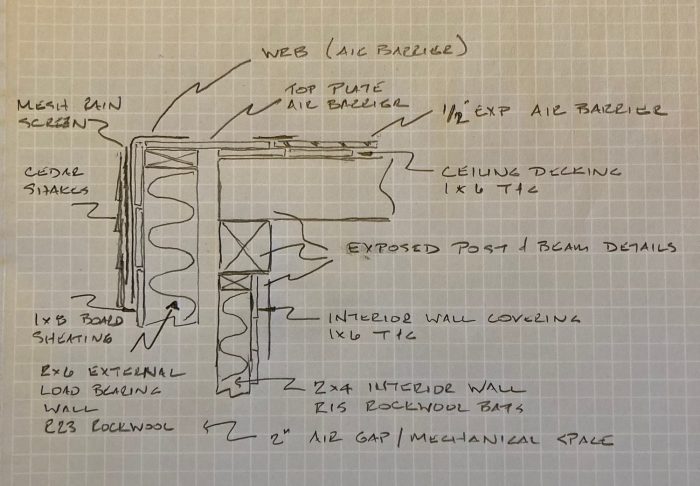 WRB (AIR BARRIER)
TOP PLATE
AIR BARRIER
1/2" EXP AIR BARRIER
MESH RAIN
SCREEN
CEDAR
SHAKES
CEILING DECKING
1x6 T+G
EXPOSED POST & BEAM DETAILS
1x8 BOARD
SHEATING
INTERIOR WALL COVERING
1x6 T+G
2x6 EXTERNAL
LOAD BEARING
WALL
R23 ROCKWOOL
2x4 INTERIOR WALL
R15 ROCKWOOL BATS
2" AIR GAP/MECHANICAL SPACE